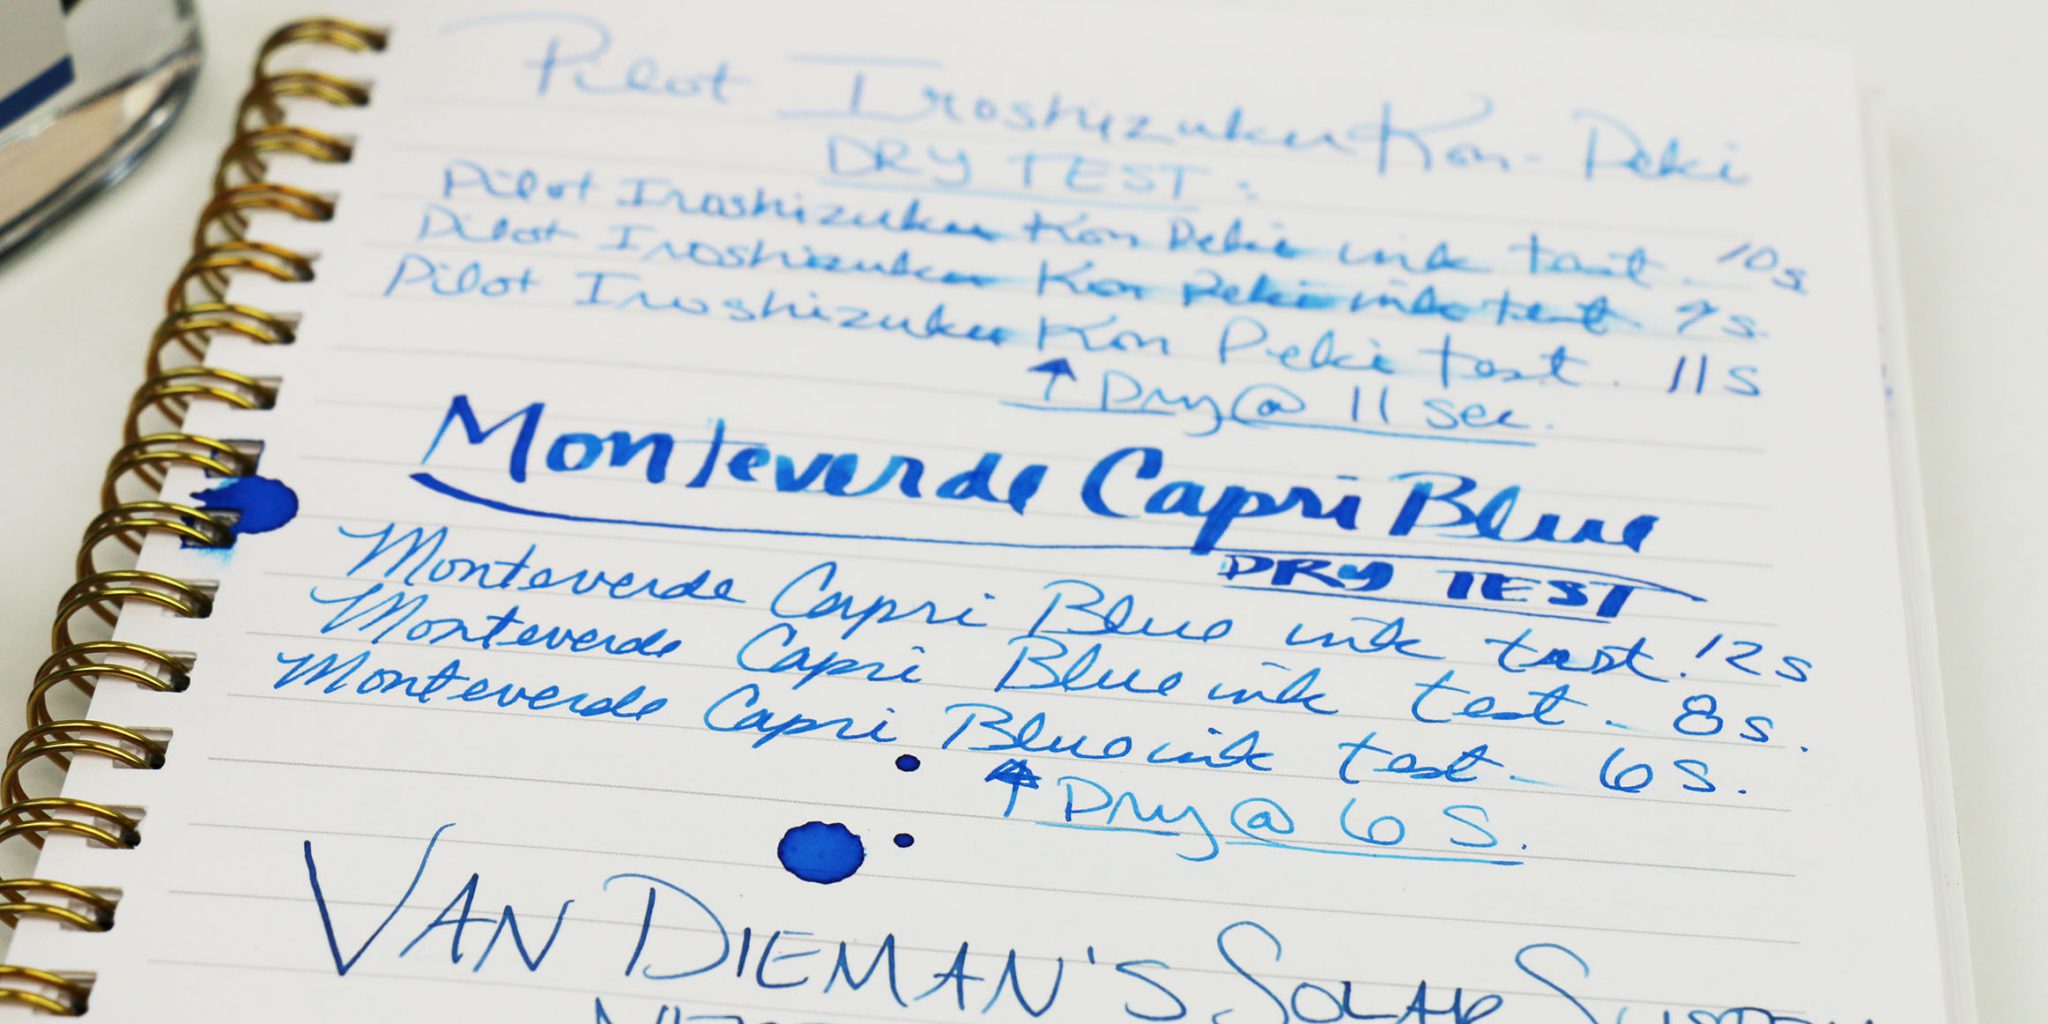 Pilot Iroshizuku Kon-Peki
DRY TEST:
Pilot Iroshizuku Kon Peki ink test. 10s
Pilot Iroshizuku Kon Peki ink test. 9s.
Pilot Iroshizuku Kon Peki test. 11s
↑ Dry @ 11 sec.
Monteverde Capri Blue
DRY TEST
Monteverde Capri Blue ink test. 12s
Monteverde Capri Blue ink test. 8s.
Monteverde Capri Blue ink test. 6s.
↑ Dry @ 6 S.
VAN DIEMAN'S SOLAR SYSTEM